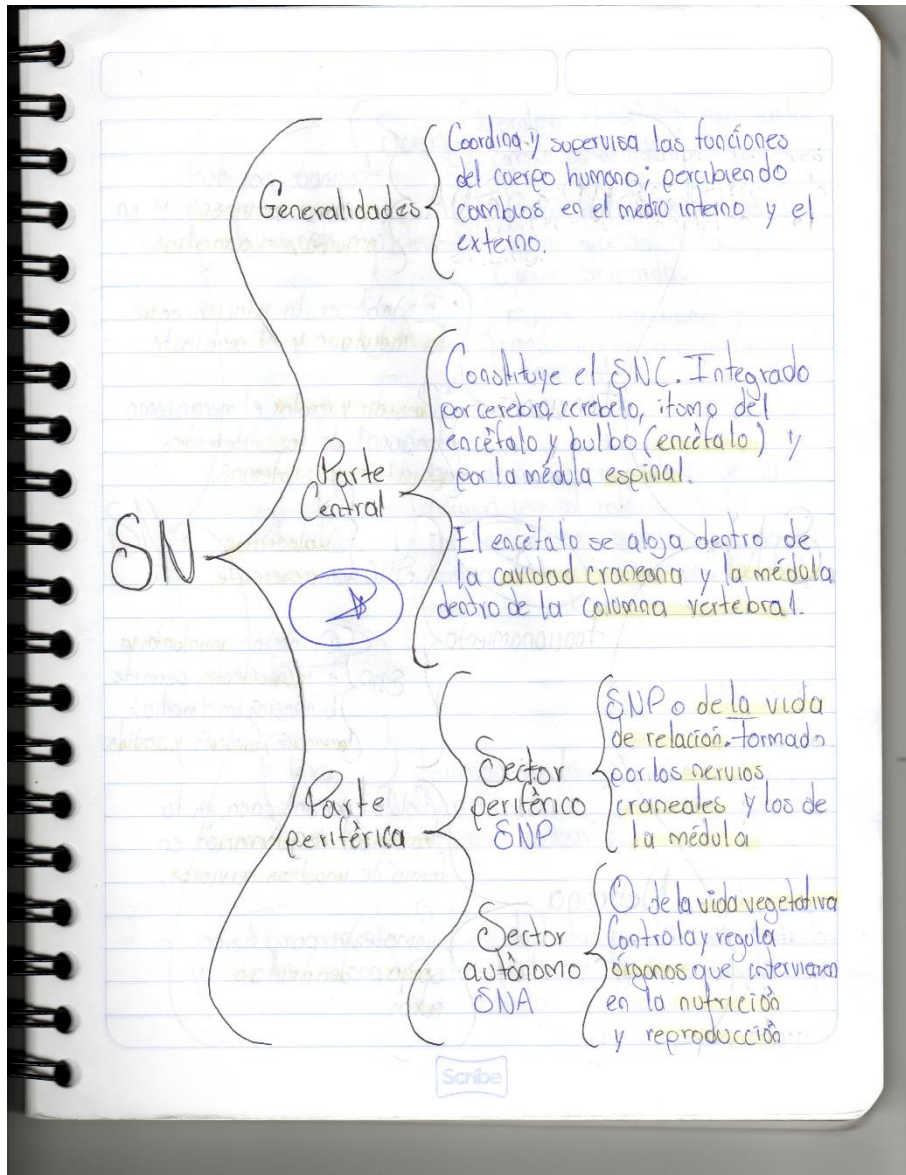 SN
Generalidades
Coordina y supervisa las funciones
del cuerpo humano; percibiendo
cambios en el medio interno y el
externo.
Parte
Central
Constituye el SNC. Integrado
por cerebro, cerebelo, itsmo del
encéfalo y bulbo (encéfalo) y
por la médula espinal.
El encéfalo se aloja dentro de
la cavidad craneana y la médula
dentro de la columna vertebral.
Parte
periférica
Sector
periférico
SNP
SNP o de la vida
de relación. formado
por los nervios
craneales y los de
la médula
Sector
autónomo
SNA
O de la vida vegetativa
Controla y regula
órganos que intervienen
en la nutrición
y reproducción
Scribe